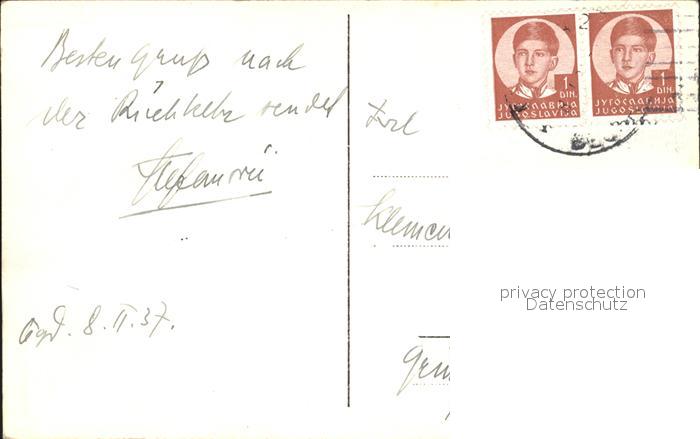 Besten Gruß nach
der Rückkehr sendet
Stefanović
Bgd. 8.II.37.
Frl
Klemen
1 DIN.
ЈУГОСЛАВИЈА
JUGOSLAVIJA
1 DIN.
ЈУГОСЛАВИЈА
JUGOSLAVIJA
privacy protection
Datenschutz